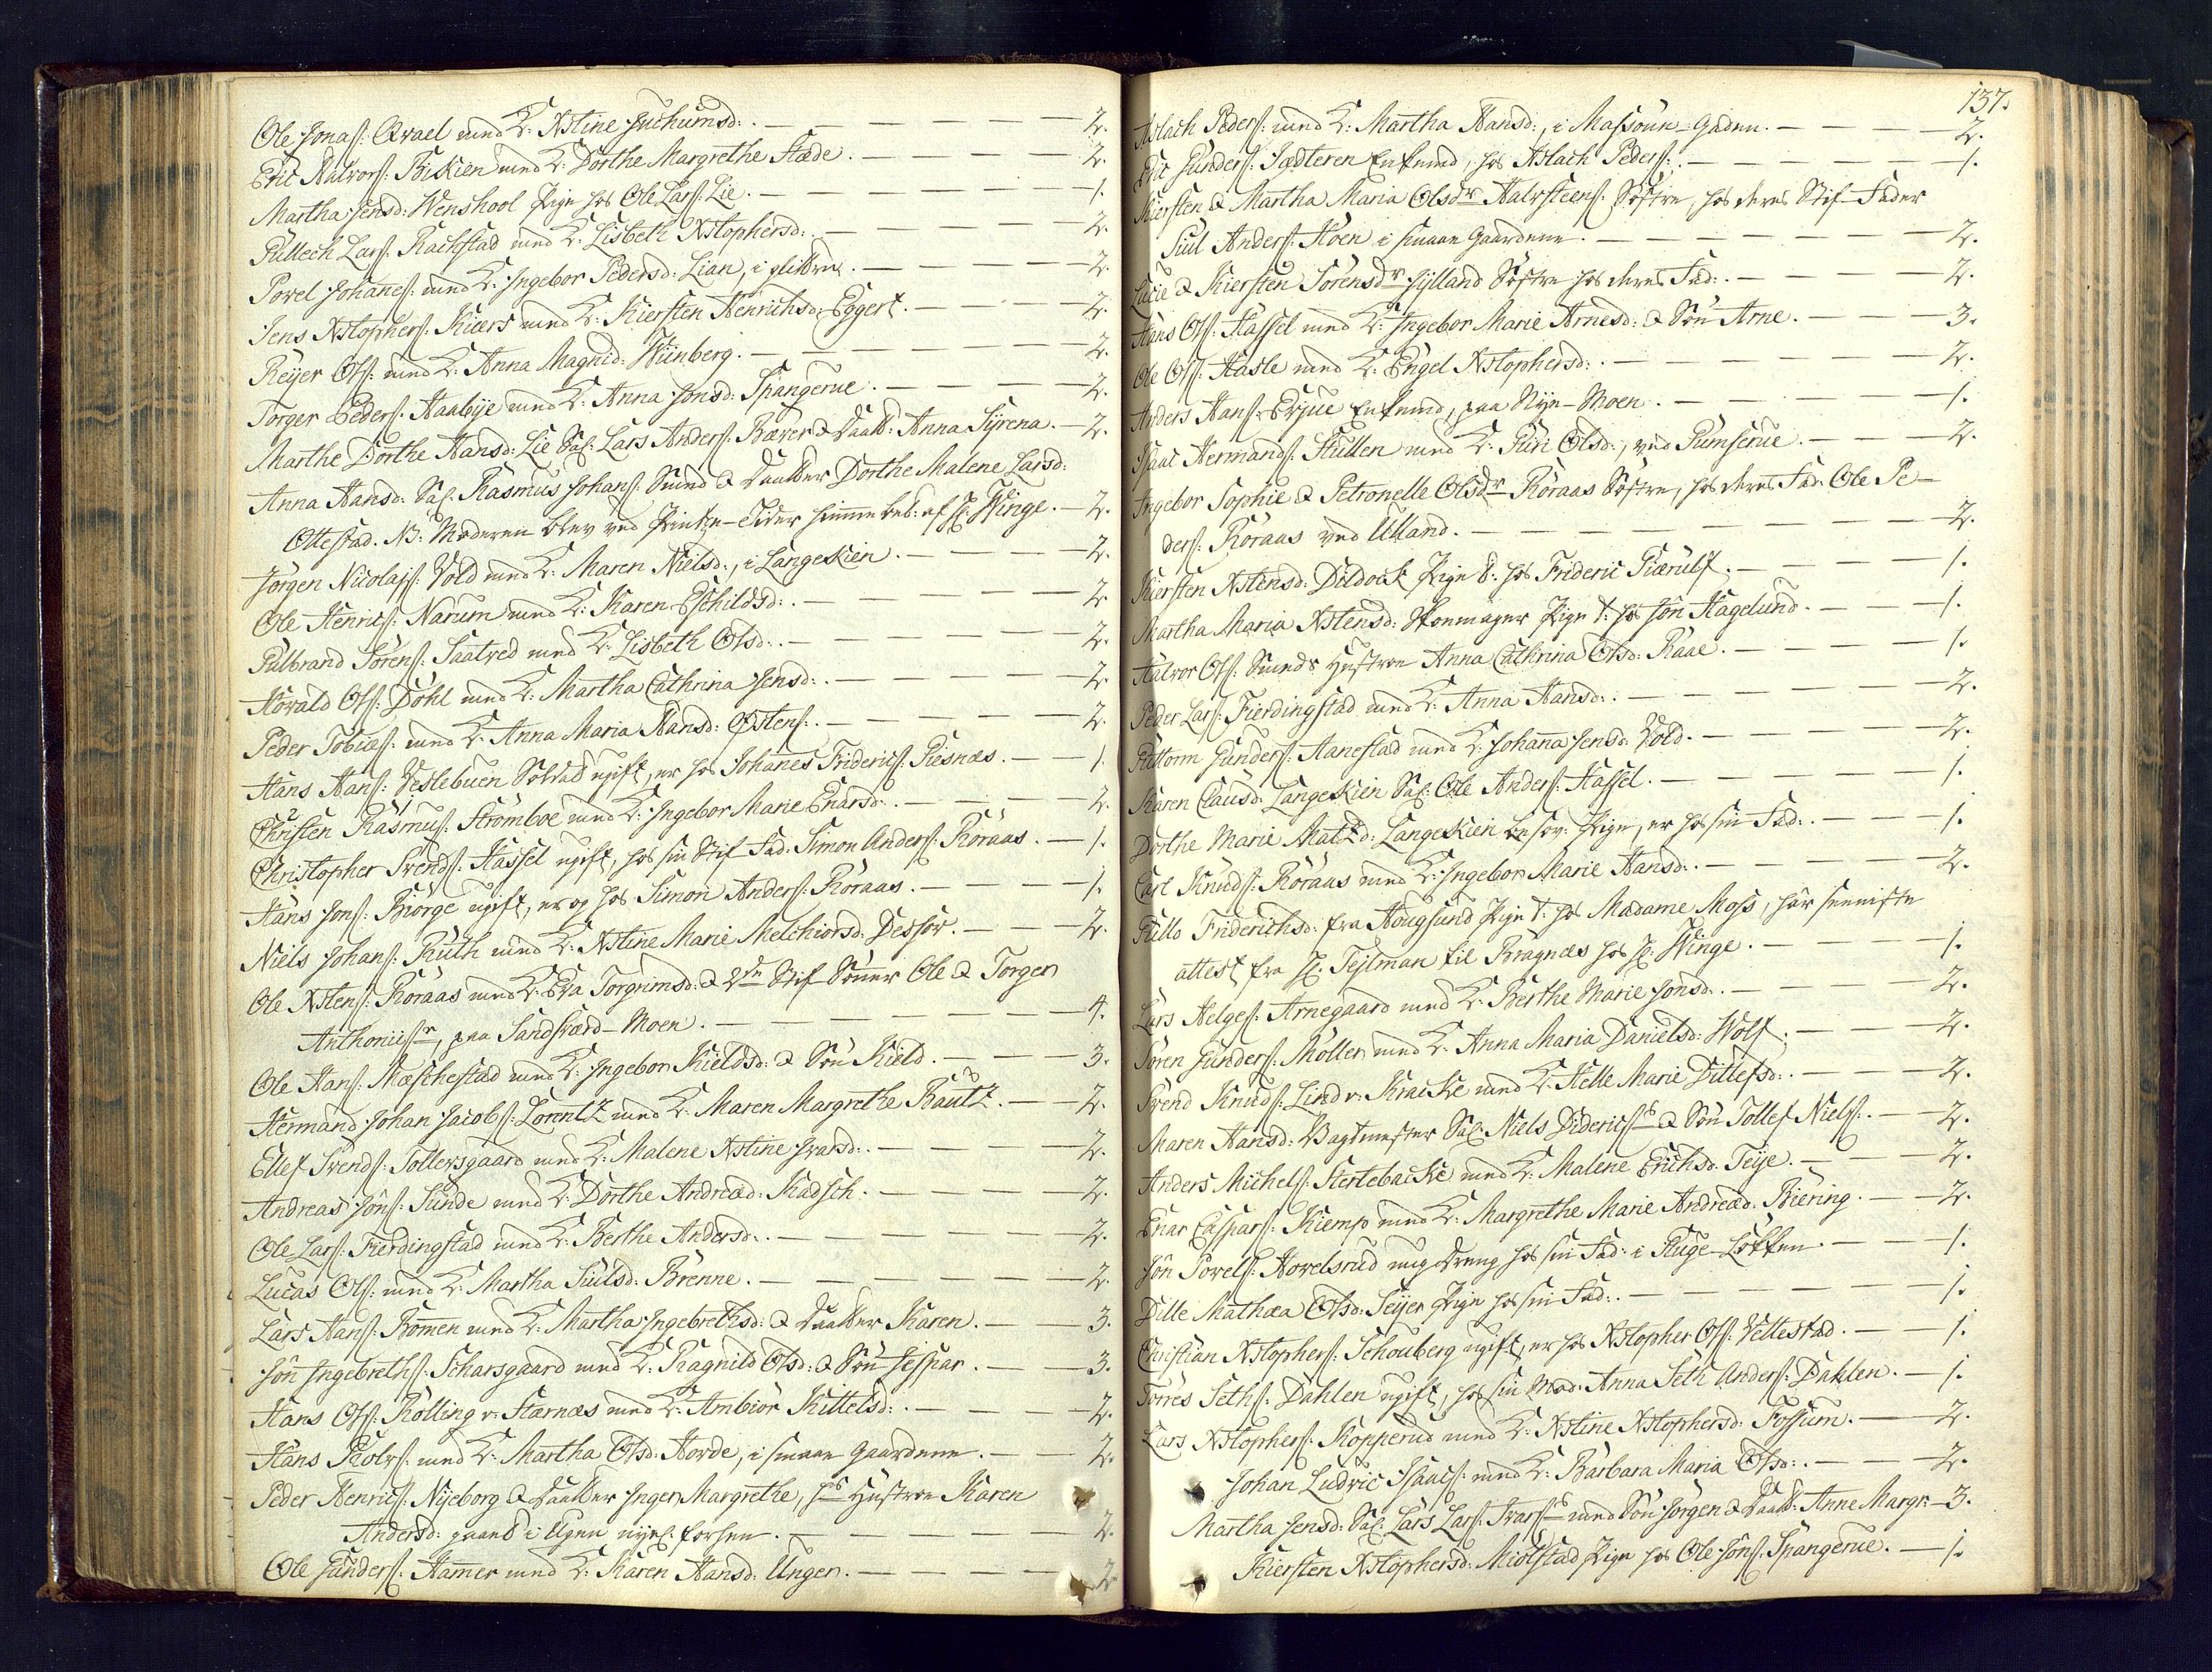 Ole Jonas: Qvael med K: Xstine Jochumsd: . — 2.
Eric Halvors: Bekien med K: Dorthe Margrethe Hæde . — 2.
Martha Jensd: Wenshool Pige hos Ole Lars: Lie . — 1.
Gullech Lars: Rachstad med K: Lisbeth Xstophersd: . — 2.
Povel Johanes: med K: Ingebor Pedersd: Lian, i . — 2.
Jens Xstophers: Kiærs med K: Kiersten Henrichsd: Eggert . — 2.
Reyer Ols: med K: Anna Magnid: Wiinberg . — 2.
Torger Peders: Haabye med K: Anna Jonsd: Spangerue . — 2.
Marthe Dorthe Hansd: Lie Sal: Lars Anders: Bæver & Daatt: Anna Syrena . — 2.
Anna Hansd: Sal: Rasmus Johans: Smed & Daatter Dorthe Malene Larsd:
Ottestad. NB: Moderen blev ved Pintze-Tider af Hr: Winge . — 2.
Jörgen Nicolajs: Vold med K: Maren Nielsd:, i Langeskien . — 2.
Ole Henrics: Narum med K: Karen Eschildsd: . — 2
Gulbrand Sörens: Saatved med K: Lisbeth Olsd: . — 2.
Howald Ols: Döhl med K: Martha Cathrina Jensd: . — 2.
Peder Tobias: med K: Anna Maria Hansd: Östens: . — 2.
Hans Hans: Veslebuen Soldat ugift, er hos Johanes Friderics: Giesnæs . — 1.
Christen Rasmus: Strömboe med K: Ingebor Marie Enersd: . — 2.
Christopher Svends: Hassel ugift, hos sin Stif Fad: Simon Anders: Röraas . — 1.
Hans Jons: Biörge ugift, er og hos Simon Anders: Röraas . — 1.
Niels Johans: Ruth med K: Xstine Marie Melchiorsd: Dessör . — 2.
Ole Xstens: Roraas med K: Eva Torgrimsd: & 2de Stif Sönner Ole & Torger
Anthonis:r, paa Sandsværd-Moen . — 4.
Ole Hans: Moeschestad med K: Ingebor Kieldsd: & Sön Kield . — 3.
Hermand Johan Jacobs: Lorentz med K: Maren Margrethe Bautz . — 2.
Ellef Svends: Tollersgaard med K: Malene Xstine Ivarsd: . — 2.
Andreas Jöns: Sunde med K: Dorthe Andreæd: Kadsch . — 2.
Ole Lars: Fierdingstad med K: Berthe Andersd: . — 2.
Lucas Ols: med K: Martha Siulsd: Brenne . — 2.
Lars Hans: Bommen med K: Martha Ingebrethsd: & Daatter Karen . — 3.
Jön Ingebreths: Scharsgaard med K: Ragnild Olsd: & Sön Jespar . — 3.
Hans Ols: Rolling v: Stærnæs med K: Ambior Kittelsd: . — 2.
Hans Rolvs: med K: Martha Olsd: Horde, i smaae Gaardene . — 2.
Peder Henrics: Nyeborg & Daatter Inger Margrethe, hs Hustroe Karen
Andersd: gaaed i Ugen . — 2.
Ole Gunders: Hamer med K: Karen Hansd: Unger . — 2
137.
Aslach Peders: med K: Martha Hansd:, i Massoun-Gaden . — 2.
Eric Gunders: Sædteren Enkemd, hos Aslach Peders: . — 1.
Kiersten & Martha Maria Olsdr Halvsteens: Söstre, hos deres Stif-Fader
Siul Anders: Höen i smaae Gaardene . — 2.
Lucie & Kiersten Sörensdr Jylland Söstre hos deres Fad: . — 2.
Hans Ols: Hassel med K: Ingebor Marie Arnesd: & Sön Arne . — 3.
Ole Ols: Hasle med K: Engel Xstophersd: . — 2.
Anders Hans: Erjue Enkemd, paa Nye-Moen . — 1.
Isaac Hermands: Hullen med K: Guri Olsd:, ved Gumserue . — 2.
Ingebor Sophie & Petronelle Olsdr Röraas Söstre, hos deres Fad: Ole Pe-
ders: Röraas ved Ulland . — 2.
Kiersten Xstensd: Doldock Pige t: hos Frideric Giærulf . — 1.
Martha Maria Xstensd: Skoemager Pige t: hos Jön Hagelund . — 1.
Halvor Ols: Smeds Hustroe Anna Cathrina Olsd: Raae . — 1.
Peder Lars: Fierdingstad med K: Anna Hansd: . — 2.
Guttorm Gunders: Aanestad med K: Johanna Jensd: Vold . — 2.
Karen Clausd: Langeskien Sal: Ole Anders: Hassel . — 1.
Dorthe Marie Matzd: Langeskien besov: Pige, er hos sin Fad: . — 1.
Carl Knuds: Röraas med K: Ingebor Marie Hansd: . — 2.
Gullo Friderichsd: fra Hougsund Pige t: hos Madame Moss, har seeniste
attest fra Hr: Tejlman til Bragnæs hos Hr: Winge . — 1.
Lars Helges: Arnegaard med K: Berthe Marie Jonsd: . — 2.
Sören Gunders: Möller med K: Anna Maria Danielsd: Wolf . — 2.
Svend Knuds: Lind v: Kracke med K: Helle Marie Ditlefsd: . — 2.
Maren Hansd: Vagtmester Sal: Niels Dideric:s & Sön Tollef Niels: . — 2.
Anders Michels: Stertebacke med K: Malene Erichsd: Teije . — 2.
Enar Caspars: Kiemp med K: Margrethe Marie Andreæd: Biering . — 2.
Jön Povels: Hovelsrud ung Dreng hos sin Fad: i Huge-Lökken . — 1.
Dille Mathæa Olsd: Seijer Pige hos sin Fad: . — 1.
Christian Xstophers: Schouberg ugift, er hos Xstopher Ols: Vellestad . — 1.
Torres Seths: Dahlen ugift, hos sin Mod: Anna Seth Anders: Dahlen . — 1.
Lars Xstophers: Kopperud med K: Xstine Xstophersd: Fossum . — 2.
Johan Ludvic Isaacs: med K: Barbara Maria Olsd: . — 2.
Martha Jensd: Sal: Lars Lars: Ivars:s med Sön Jörgen & Daatt: Anne Margr: — 3.
Kiersten Xstophersd: Miölstad Pige hos Ole Jöns: Spangerue . — 1.